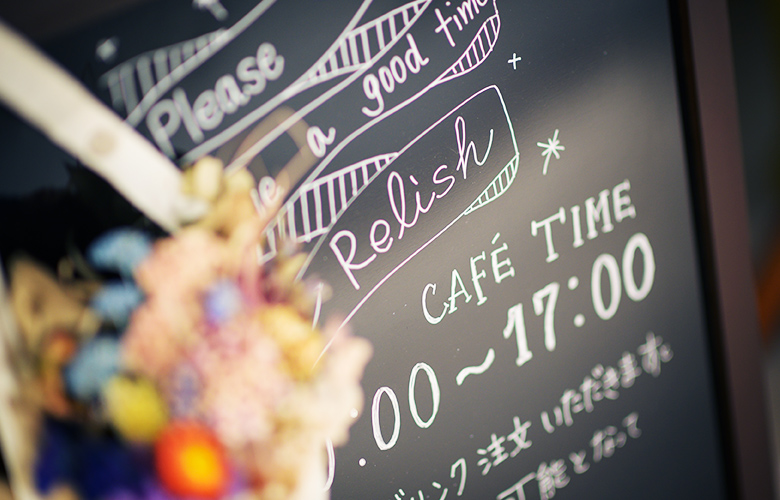 Please
a good time
Relish
CAFÉ TIME
:00～17:00
ドリンク注文いただきます。
可能となって